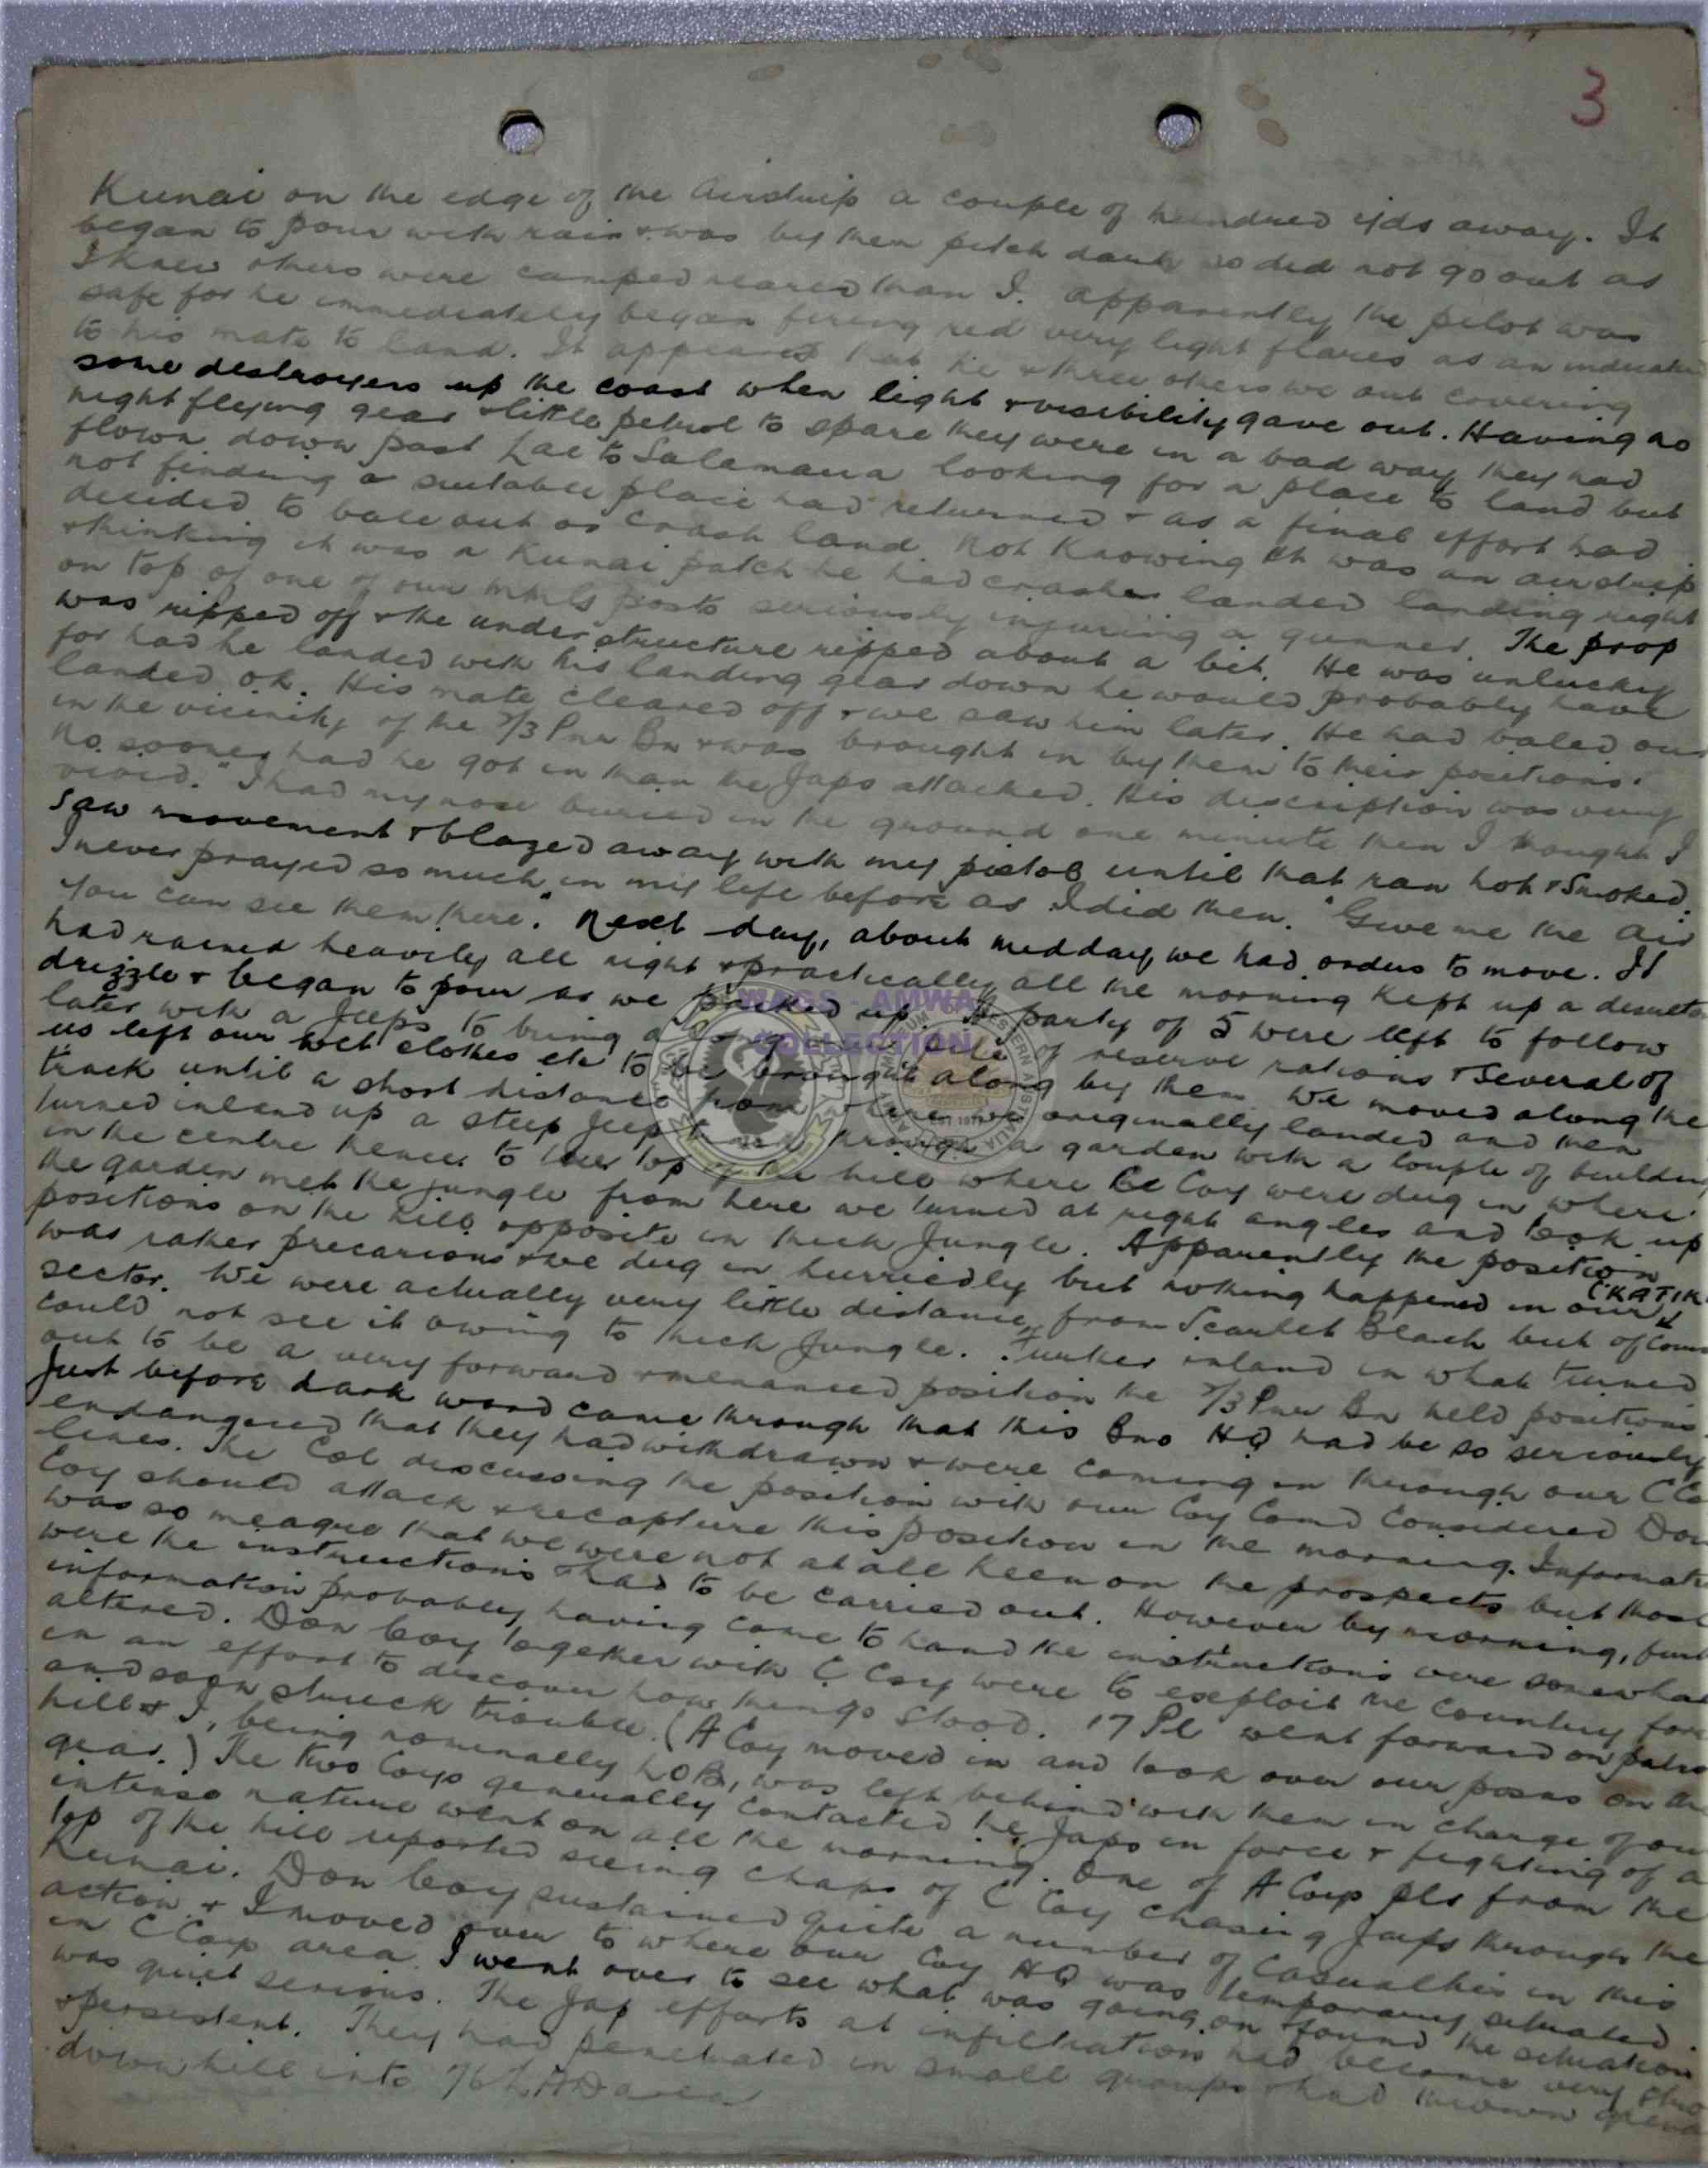 3
Kunai on the edge of the Airstrip a couple of hundred yds away. It
began to pour with rain & was by then pitch dark so did not go out as
I knew others were camped nearer than I. Apparently the pilot was
safe for he immediately began firing red very light flares as an
to his mate to land. It appeared that he & three others we out covering
some destroyers up the coast when light & visibility gave out. Having no
night flying gear & little petrol to spare they were in a bad way they had
flown down past Lae to Salamaua looking for a place to land but
not finding a suitable place had returned & as a final effort had
decided to bale out or crash land. Not knowing it was an airstrip
& thinking it was a Kunai patch he had crash landed landing right
on top of one of our posts seriously injuring a gunner. The prop
was ripped off & the under structure ripped about a bit. He was unlucky
for had he landed with his landing gear down he would probably have
landed ok. His mate cleared off & we saw him later. He had baled out
in the vicinity of the 2/3 Pnr Bn & was brought in by them to their positions.
No sooner had he got in than the Japs attacked. His description was very
vivid. "I had my nose buried in the ground one minute then I thought I
saw movement & blazed away with my pistol until that ran hot & smoked.
I never prayed so much in my life before as I did then. "Give me the air
you can see them there". Next day, about midday, we had orders to move. It
had rained heavily all night & practically all the morning kept up a
drizzle & began to pour as we packed up. A party of 5 were left to follow
later with a Jeeps to bring along pile of reserve rations & several of
us left our wet clothes etc to be brought along by them. We moved along the
track until a short distance from where we originally landed and then
turned inland up a steep Jeep track through a garden with a couple of
in the centre hence to the top of the hill where Coy were dug in where
the garden met the jungle from here we turned at right angles and took up
positions on the hill opposite in thick Jungle. Apparently the position
was rather precarious & we dug in hurriedly but nothing happened in our
sector. We were actually very little distance from Scarlet Beach but of
could not see it owing to thick Jungle. Further inland in what turned
out to be a very forward & menanced position the 2/3 Pnr Bn held positions.
Just before dark word came through that this Bns HQ had be so seriously
endangered that they had withdrawn & were coming in through our C
lines. The Col discussing the position with our Coy Comd considered Don
Coy should attack & recapture this position in the morning.
was so meagre that we were not at all keen on the prospects but those
were the instructions & had to be carried out. However by morning,
information probably having come to hand the instructions were somewhat
altered. Don Coy together with C Coy were to exploit the country
in an effort to discover how things stood. 17 Pl went forward on
and soon struck trouble. (A Coy moved in and took over our posns on the
hill & I, being nominally LOB, was left behind with them in charge of our
gear.) The two Coys generally contacted the Japs in force & fighting of a
intense nature went on all the morning. One of A Coys Pls from the
top of the hill reported seeing chaps of C Coy chasing Japs through the
Kunai. Don Coy sustained quite a number of casualties in this
action & I moved over to where our Coy HQ was temporary situated
in C Coys area. I went over to see what was going on & found the situation
was quiet serious. The Jap efforts at infiltration had become very
& persistent. They had penetrated in small groups & had thrown
down hill into area
WAGS - AMWA
COLLECTION